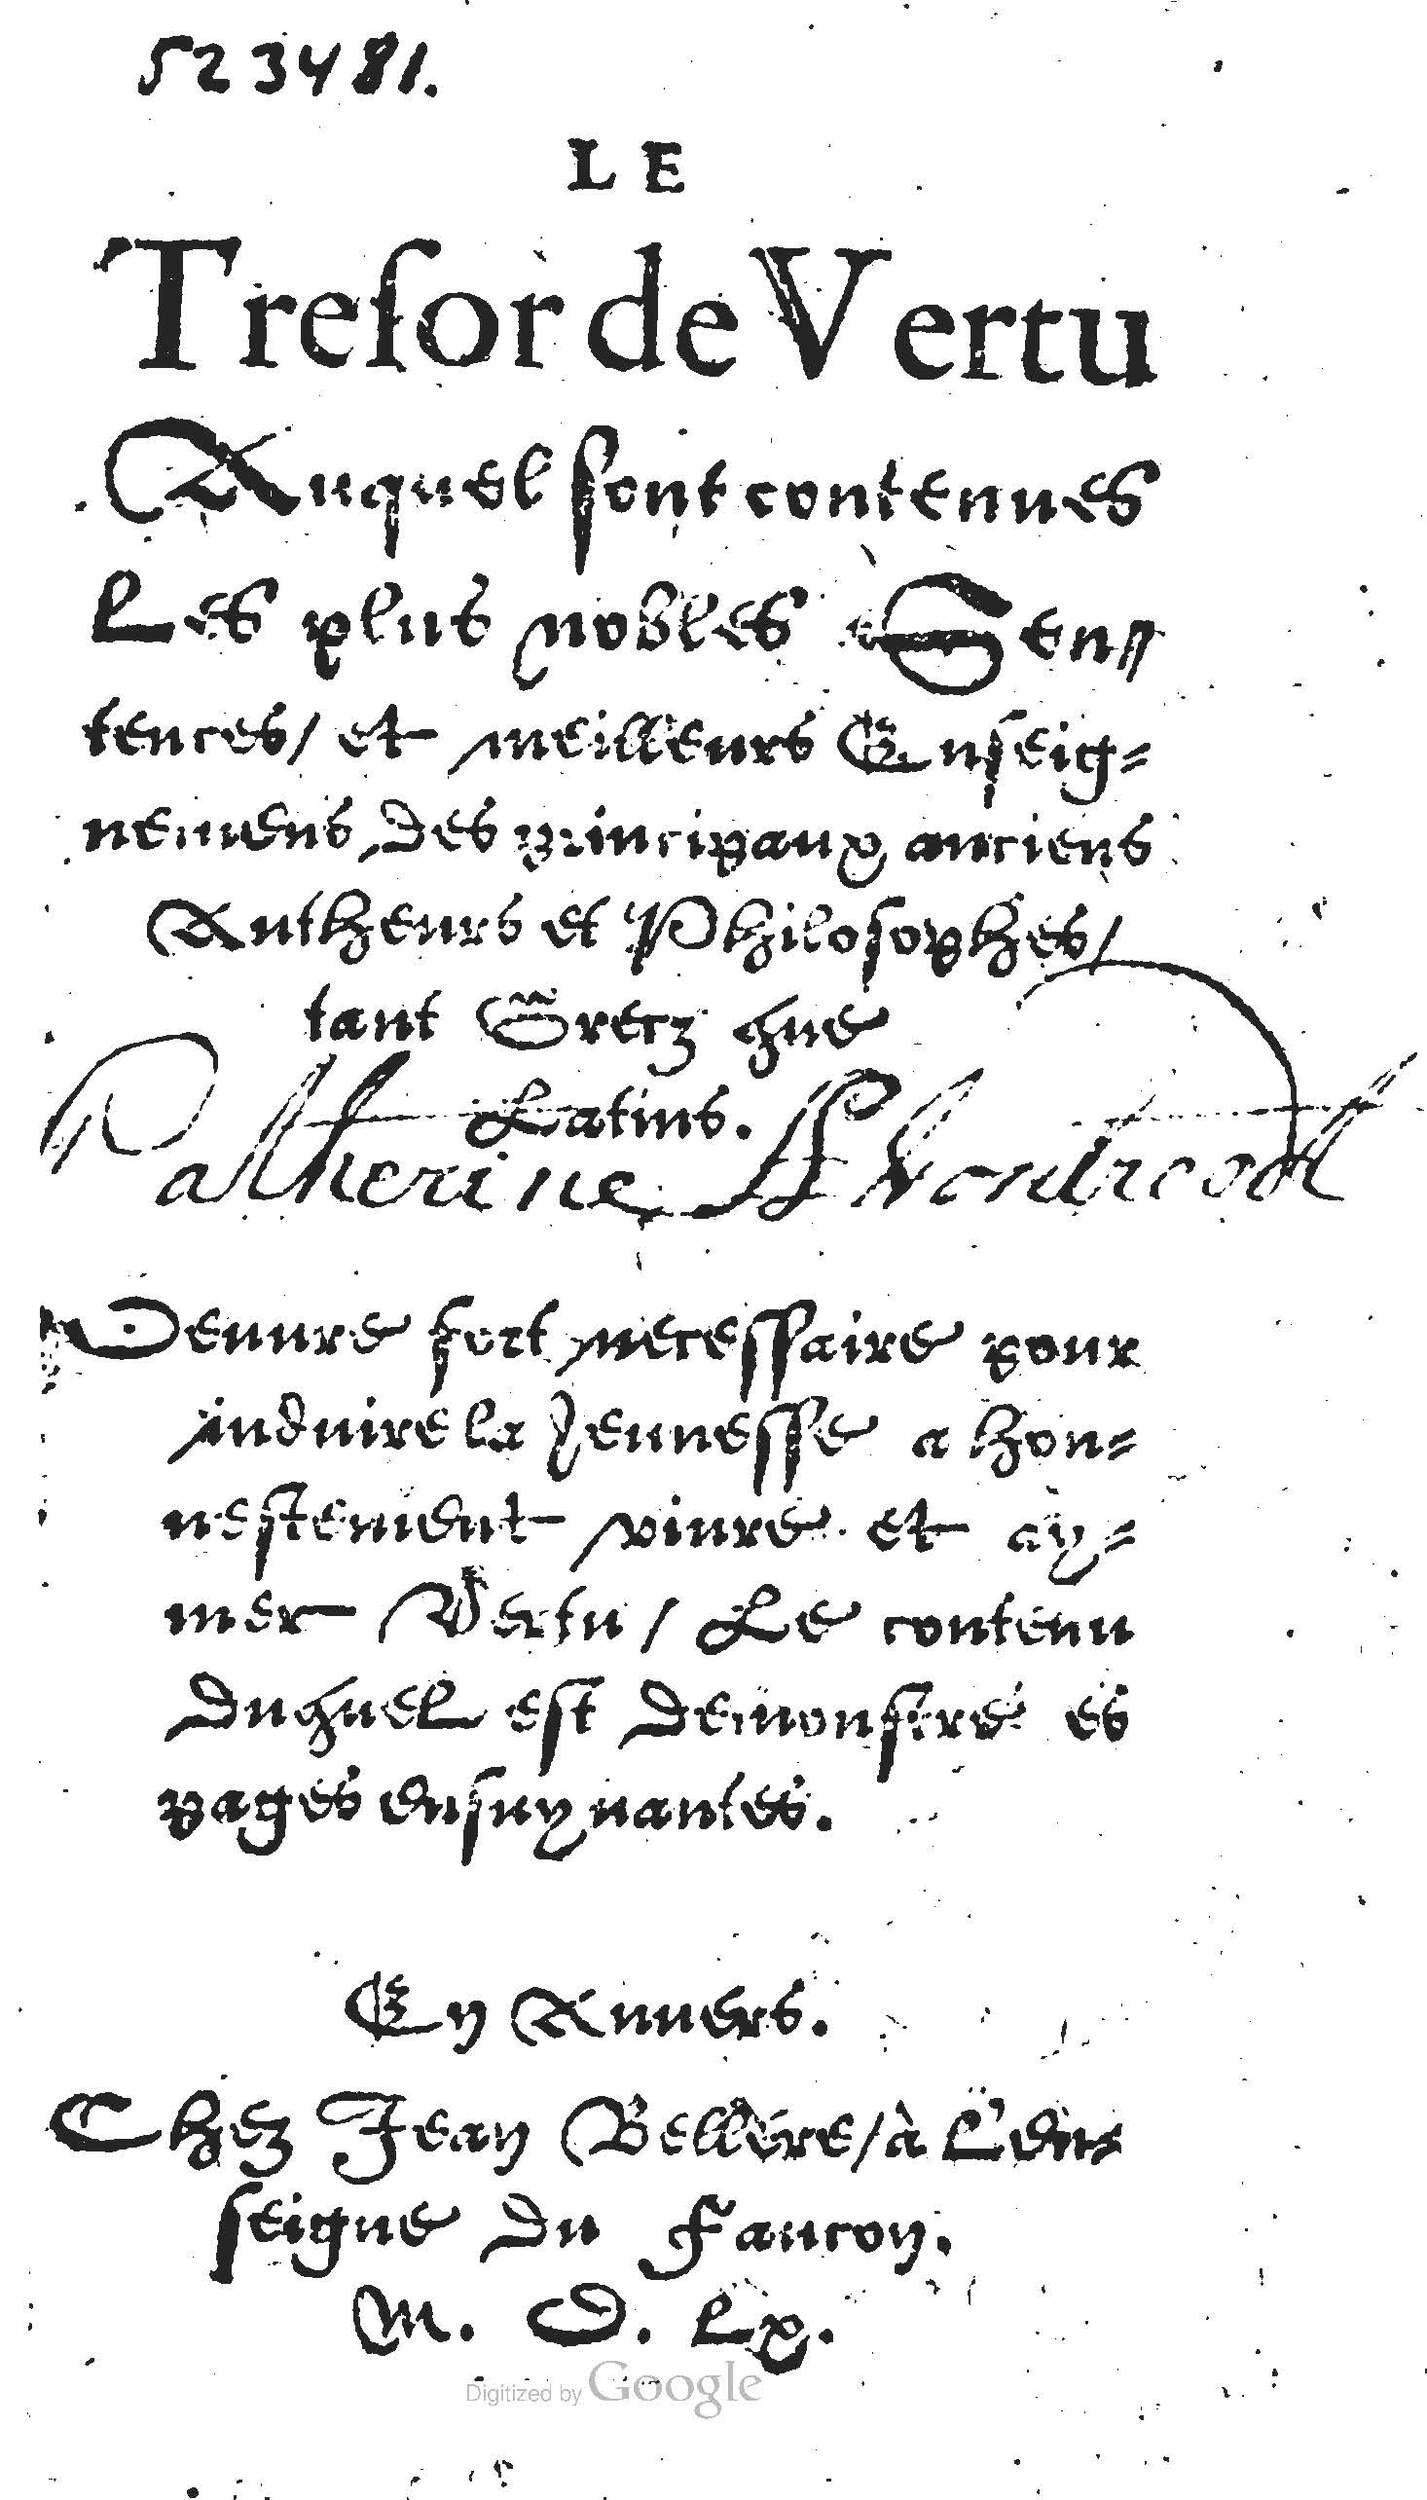 523481.
LE
Treſor de Vertu
Auquel ſont contenues
Les plus nobles Sen=
tences/ et meilleurs Enſeig=
nemens des principaux anciens
Autheurs et Philoſophes/
tant Grecz que
Latins.
Catherine
Oeuure fort necessaire pour
induire la Jeunesse a hon=
nestement viure et ay=
mer Vertu / Le contenu
duquel est demonstré es
pages ensuyuantes.
En Anuers.
Chez Jean Bellére/à L'en=
seigne du Faucon.
M. D. Lx.
Digitized by Google